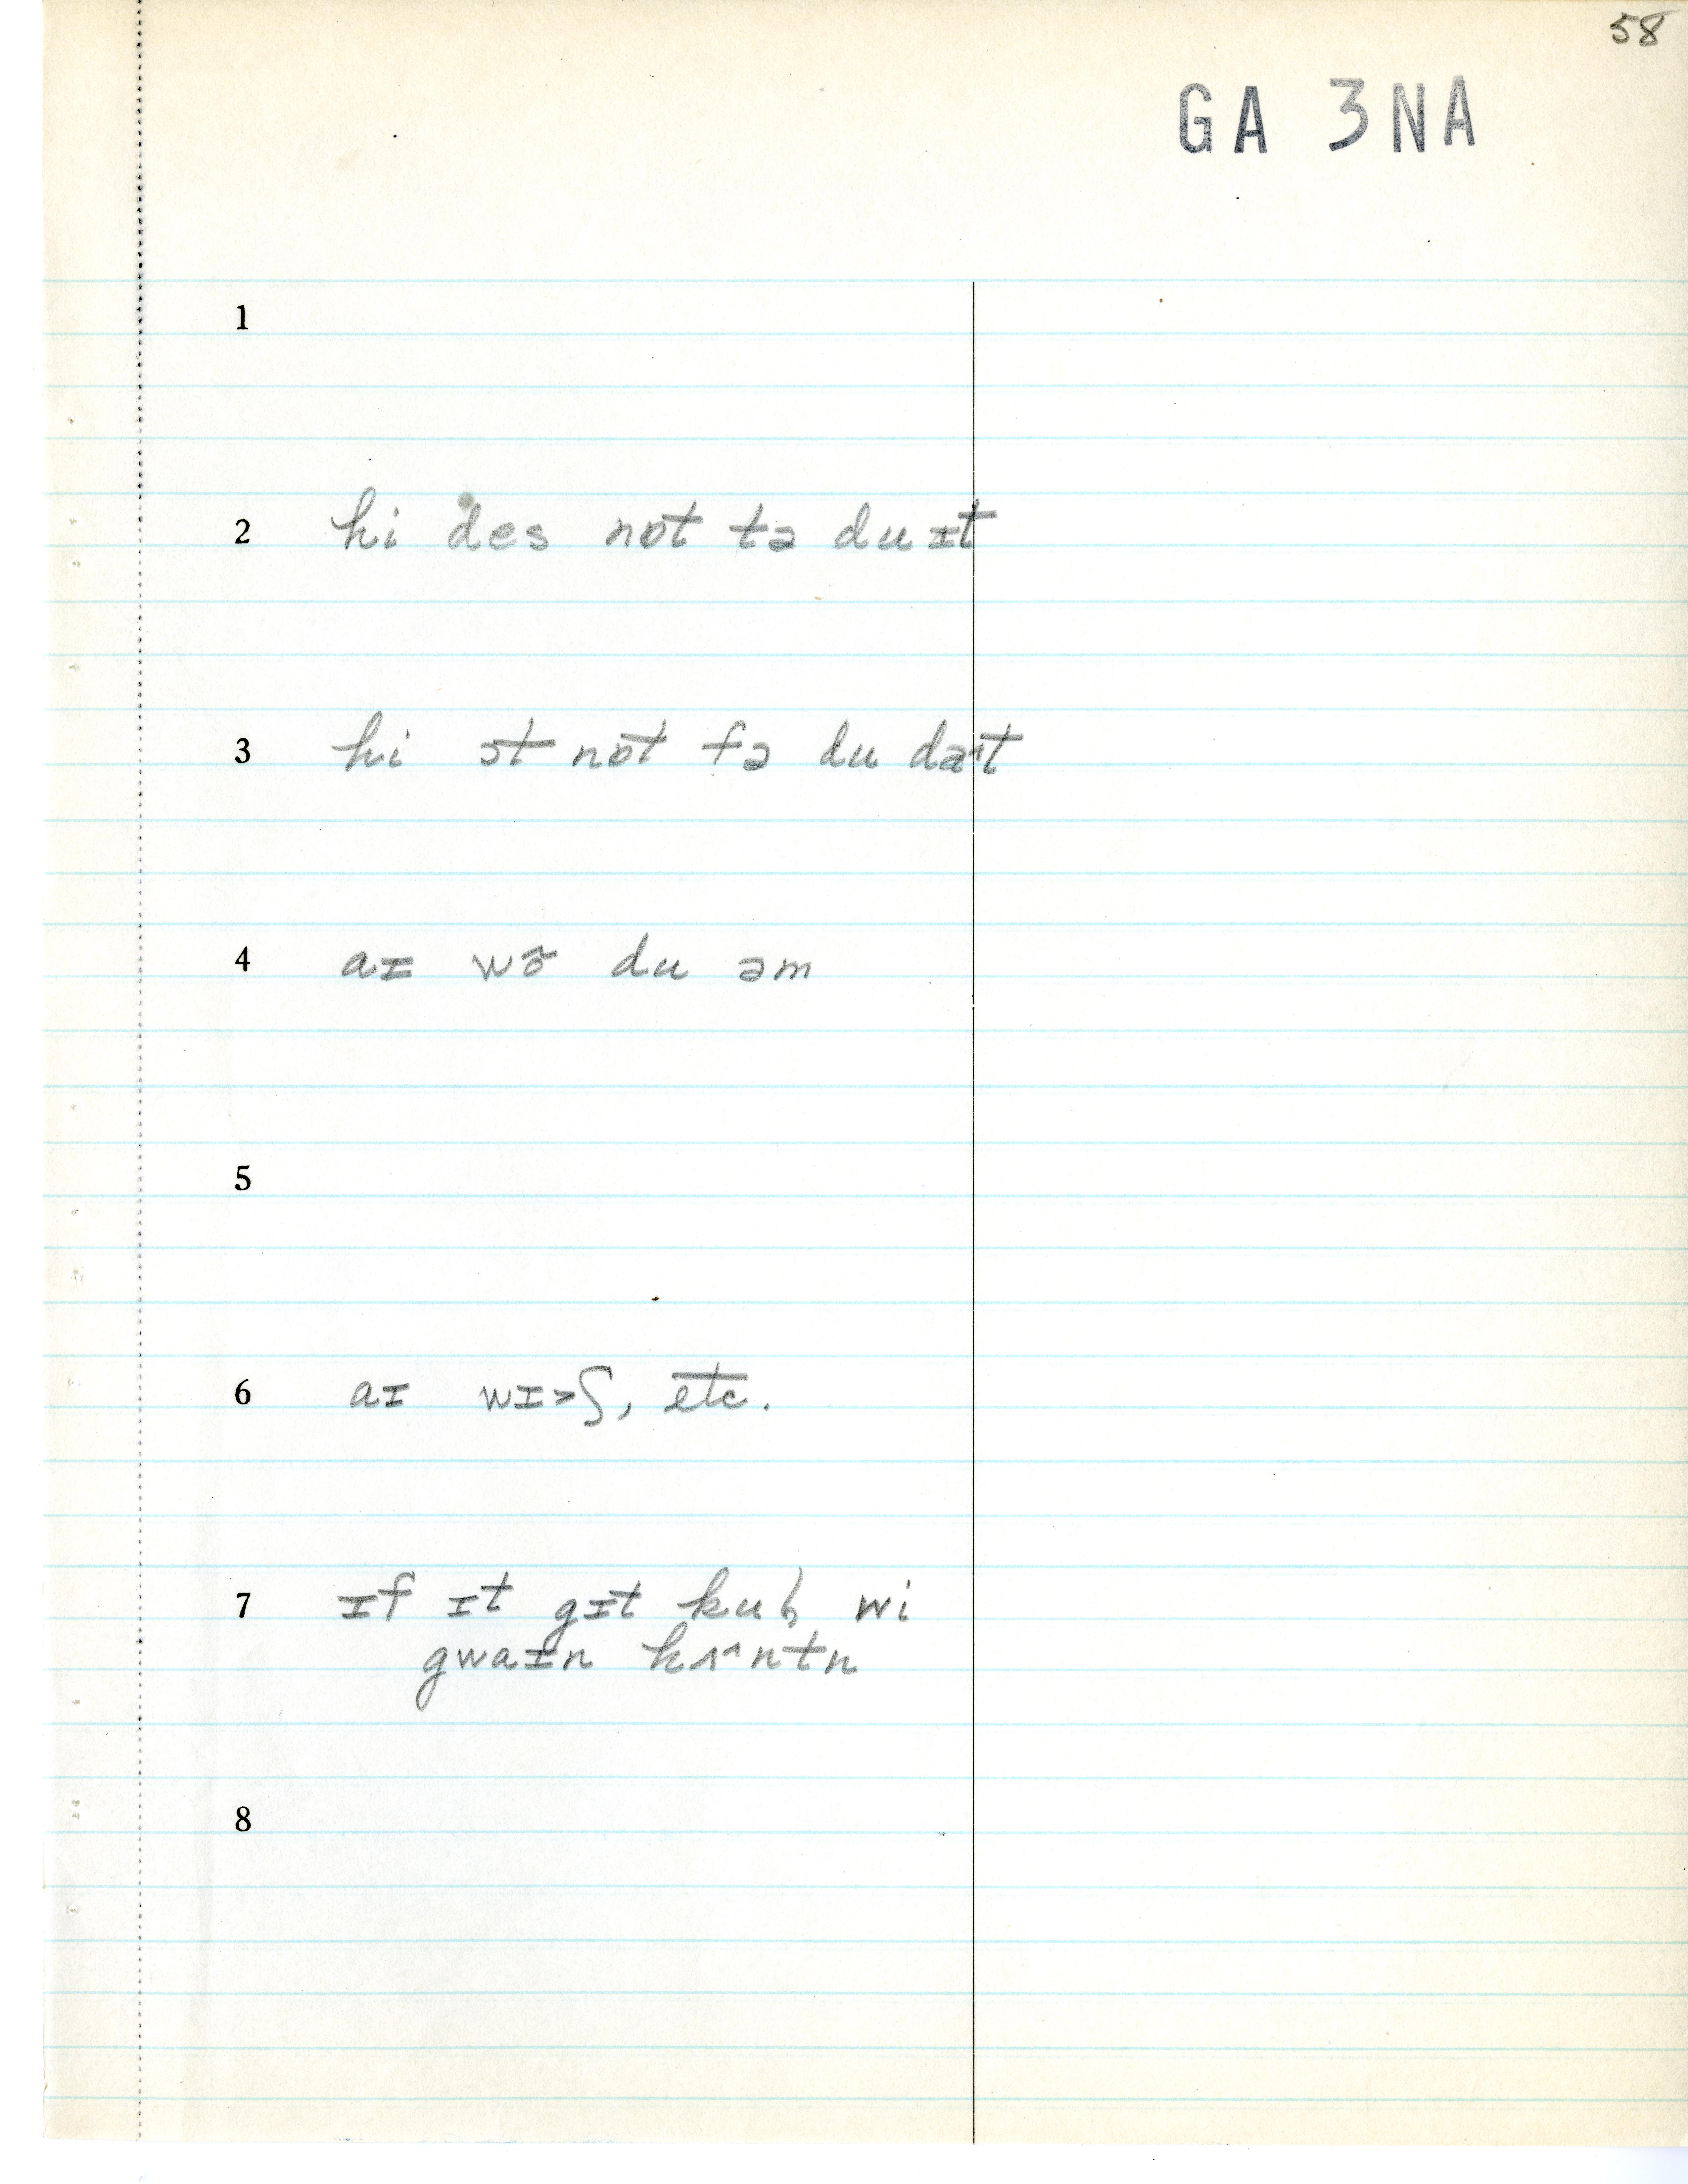 58
GA 3NA
1
2 hi des not tə du ɪt
3 hi ɔt not fə du daˑt
4 aɪ wõ du əm
5
6 aɪ wɪ>ʃ, etc.
7 ɪf ɪt gɪt kuɫ wi
gwaɪn hʌ^ntn
8